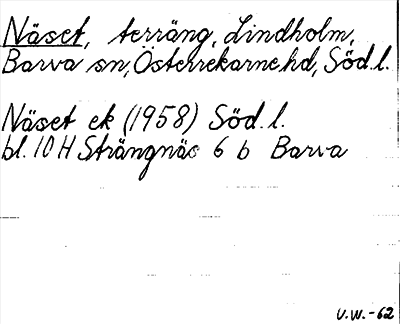 Näset, terräng, Lindholm,
Barva sn, Österrekarne hd, Söd.l.
Näset ek (1958) Söd.l.
bl. 10 H Strängnäs 6 b Barva
U.W. -62